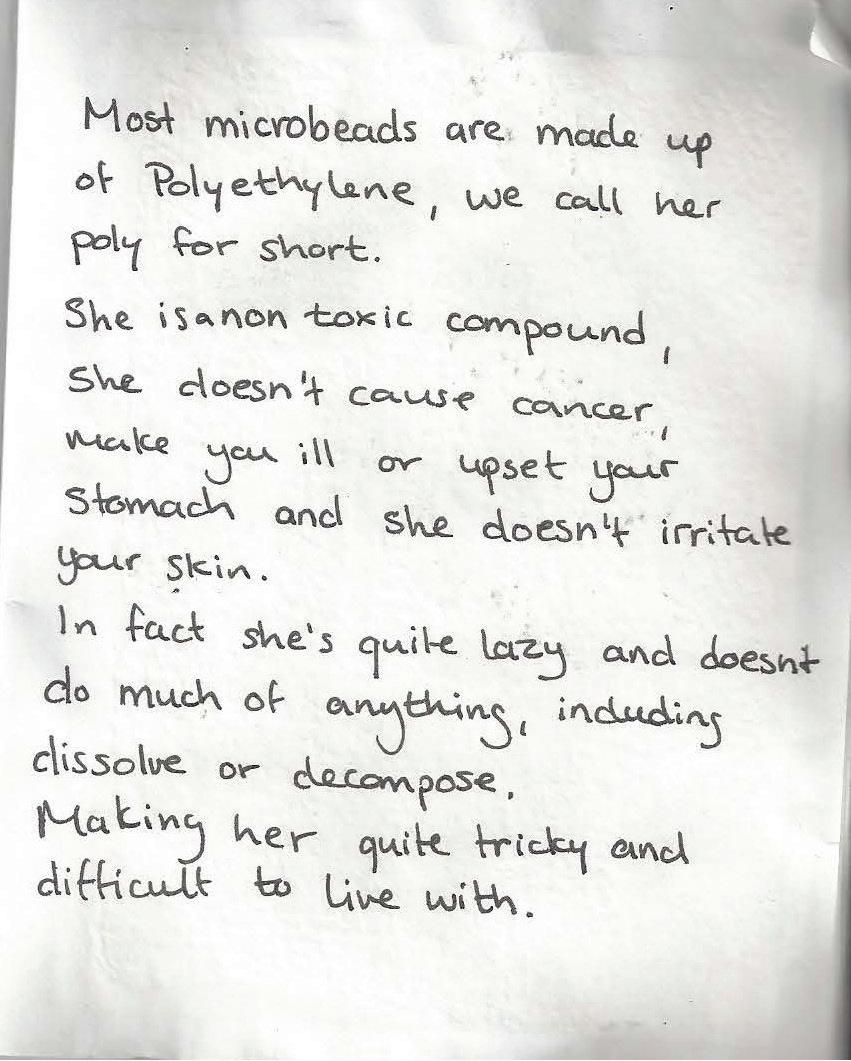 Most microbeads are made up
of Polyethylene, we call her
poly for short.
She is a non toxic compound,
She doesn't cause cancer,
make you ill or upset your
Stomach and she doesn't irritate
your skin.
In fact she's quite lazy and doesnt
do much of anything, including
dissolve or decompose.
Making her quite tricky and
difficult to live with.